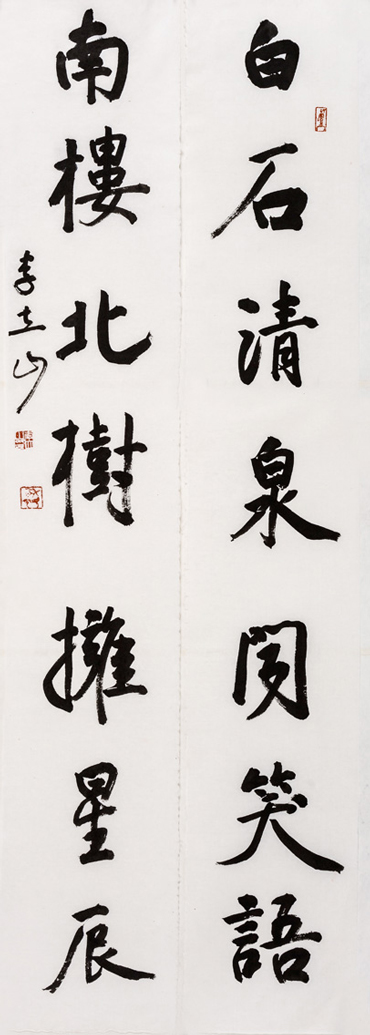 白石清泉聞笑語
南樓北樹擁星辰
李立山